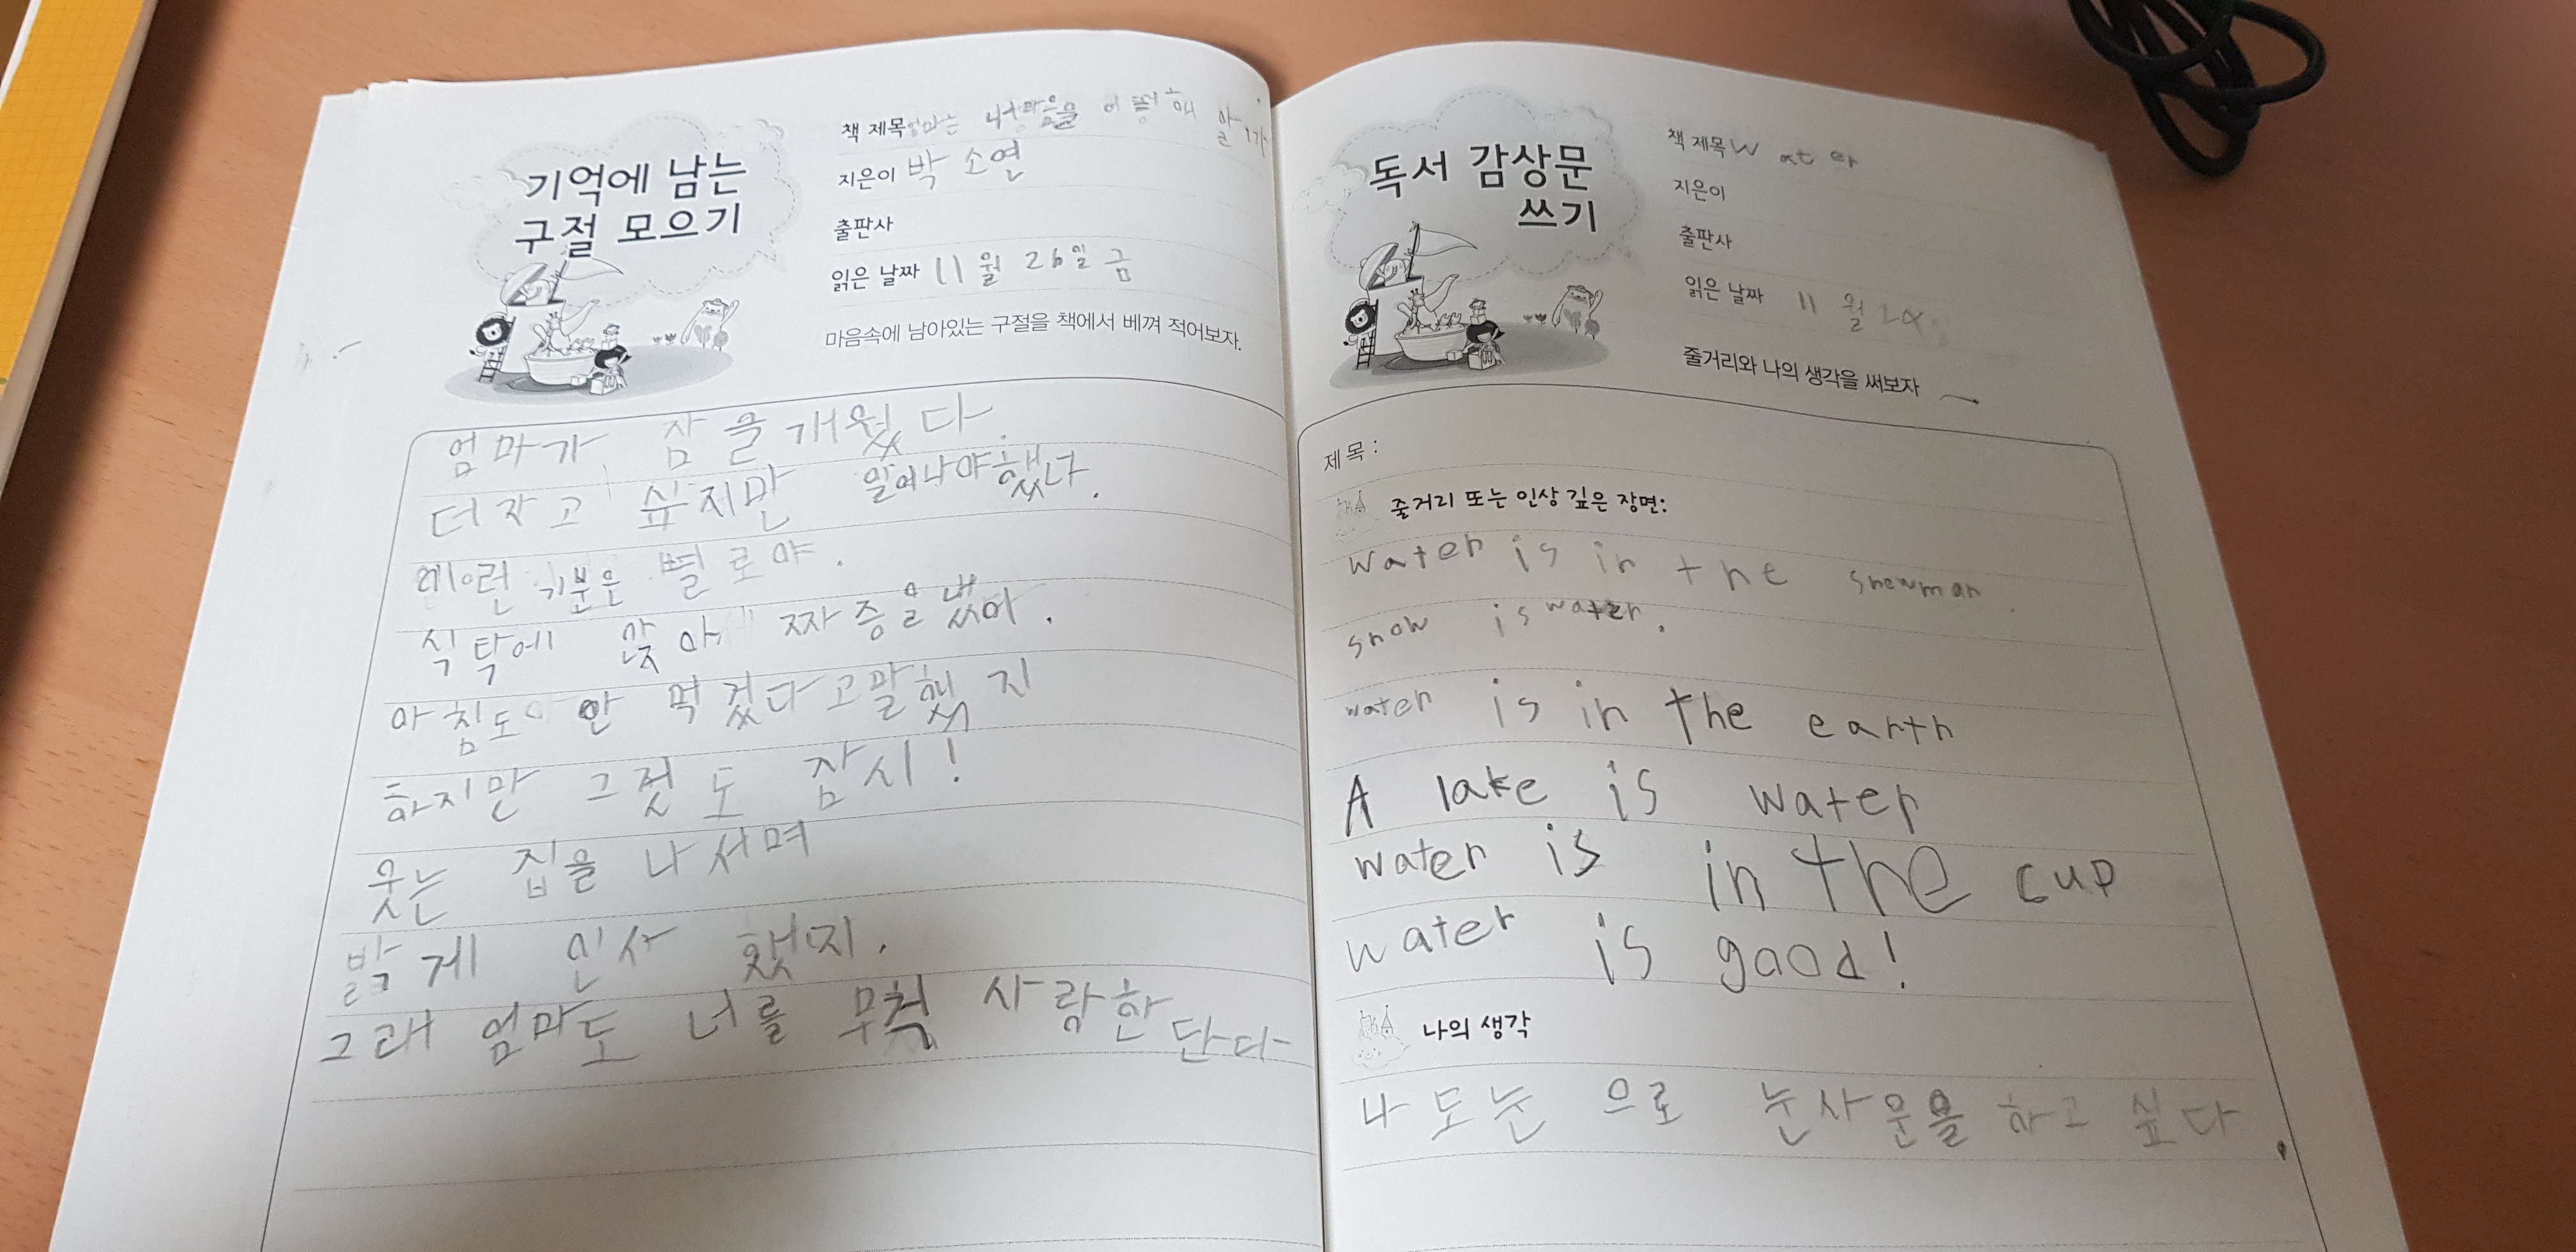 기억에 남는
구절 모으기
책 제목 엄마는 내마음을 어떻해 알
지은이 박 소연
출판사
읽은 날짜 11월 26일 금
마음속에 남아있는 구절을 책에서 베껴 적어보자.
엄마가 잠을개웠다.
더자고 싶지만 일어나야했다.
기분은 별로야.
식탁에 앉아 짜증을냈어.
아침도 안 먹겠다고말했지
하지만 그것도 잠시!
웃는 집을 나서며
밝게 인사 했지.
그래 엄마도 너를 무척 사랑한단다
독서 감상문
쓰기
책 제목 Water
지은이
출판사
읽은 날짜 11월
줄거리와 나의 생각을 써보자
제목:
줄거리 또는 인상 깊은 장면:
Water is in the snowman.
snow is water.
water is in the earth
A lake is water
water is in the cup
water is good!
나의 생각
나도눈 으로 눈사문을 하고 싶다.